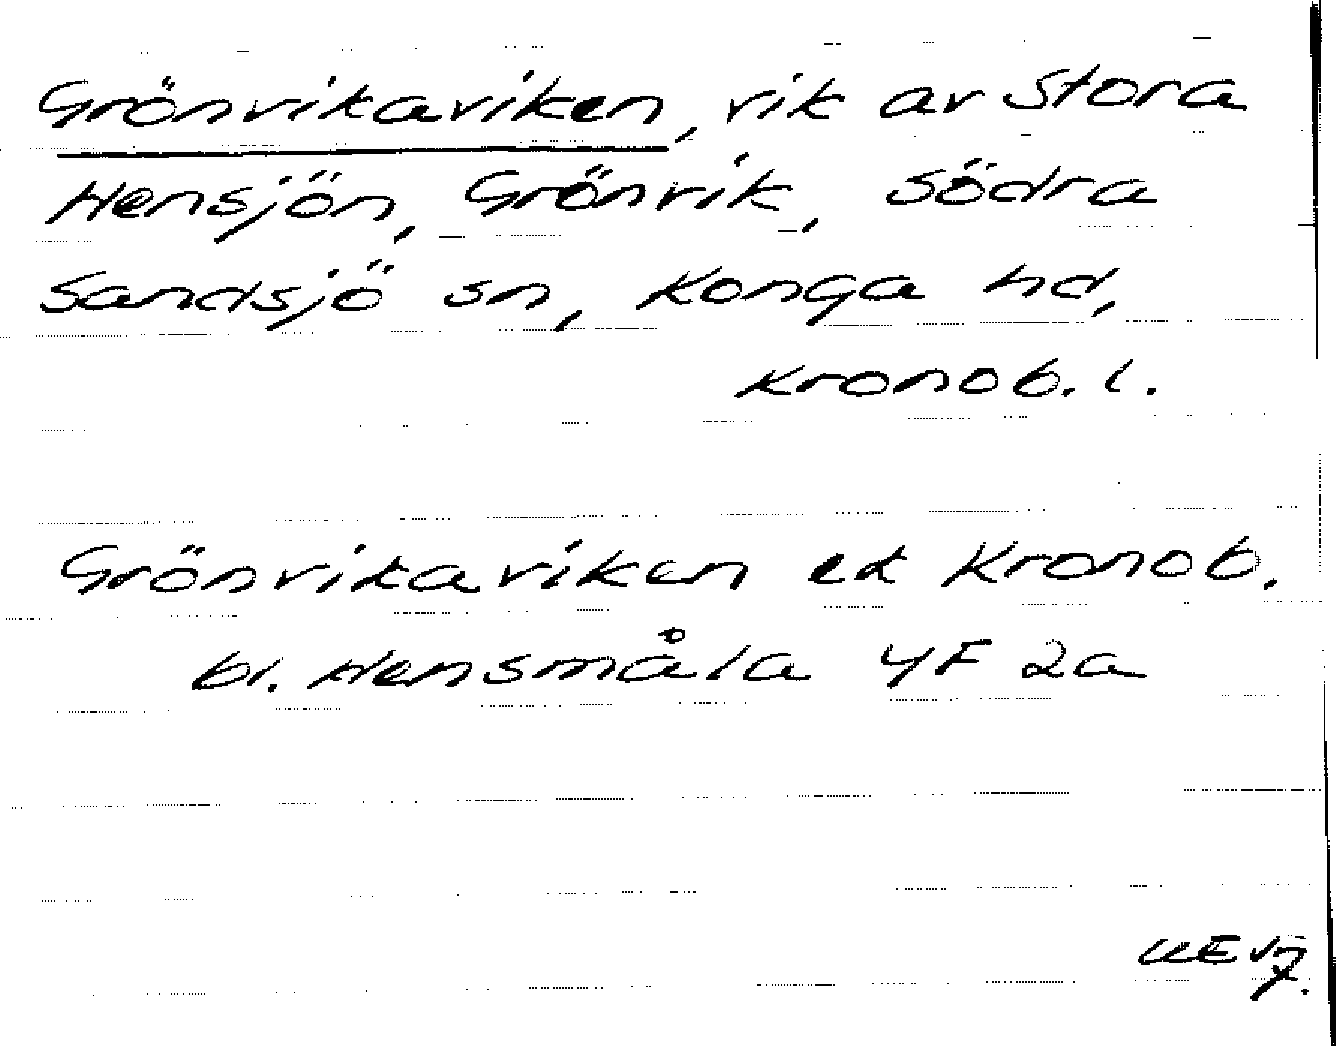 Grönvikaviken, vik av Stora
Hensjön, Grönvik, Södra
Sandsjö sn, Konga hd,
Kronob. l.
Grönvikaviken ek Kronob.
bl. Hensmåla 4F 2a